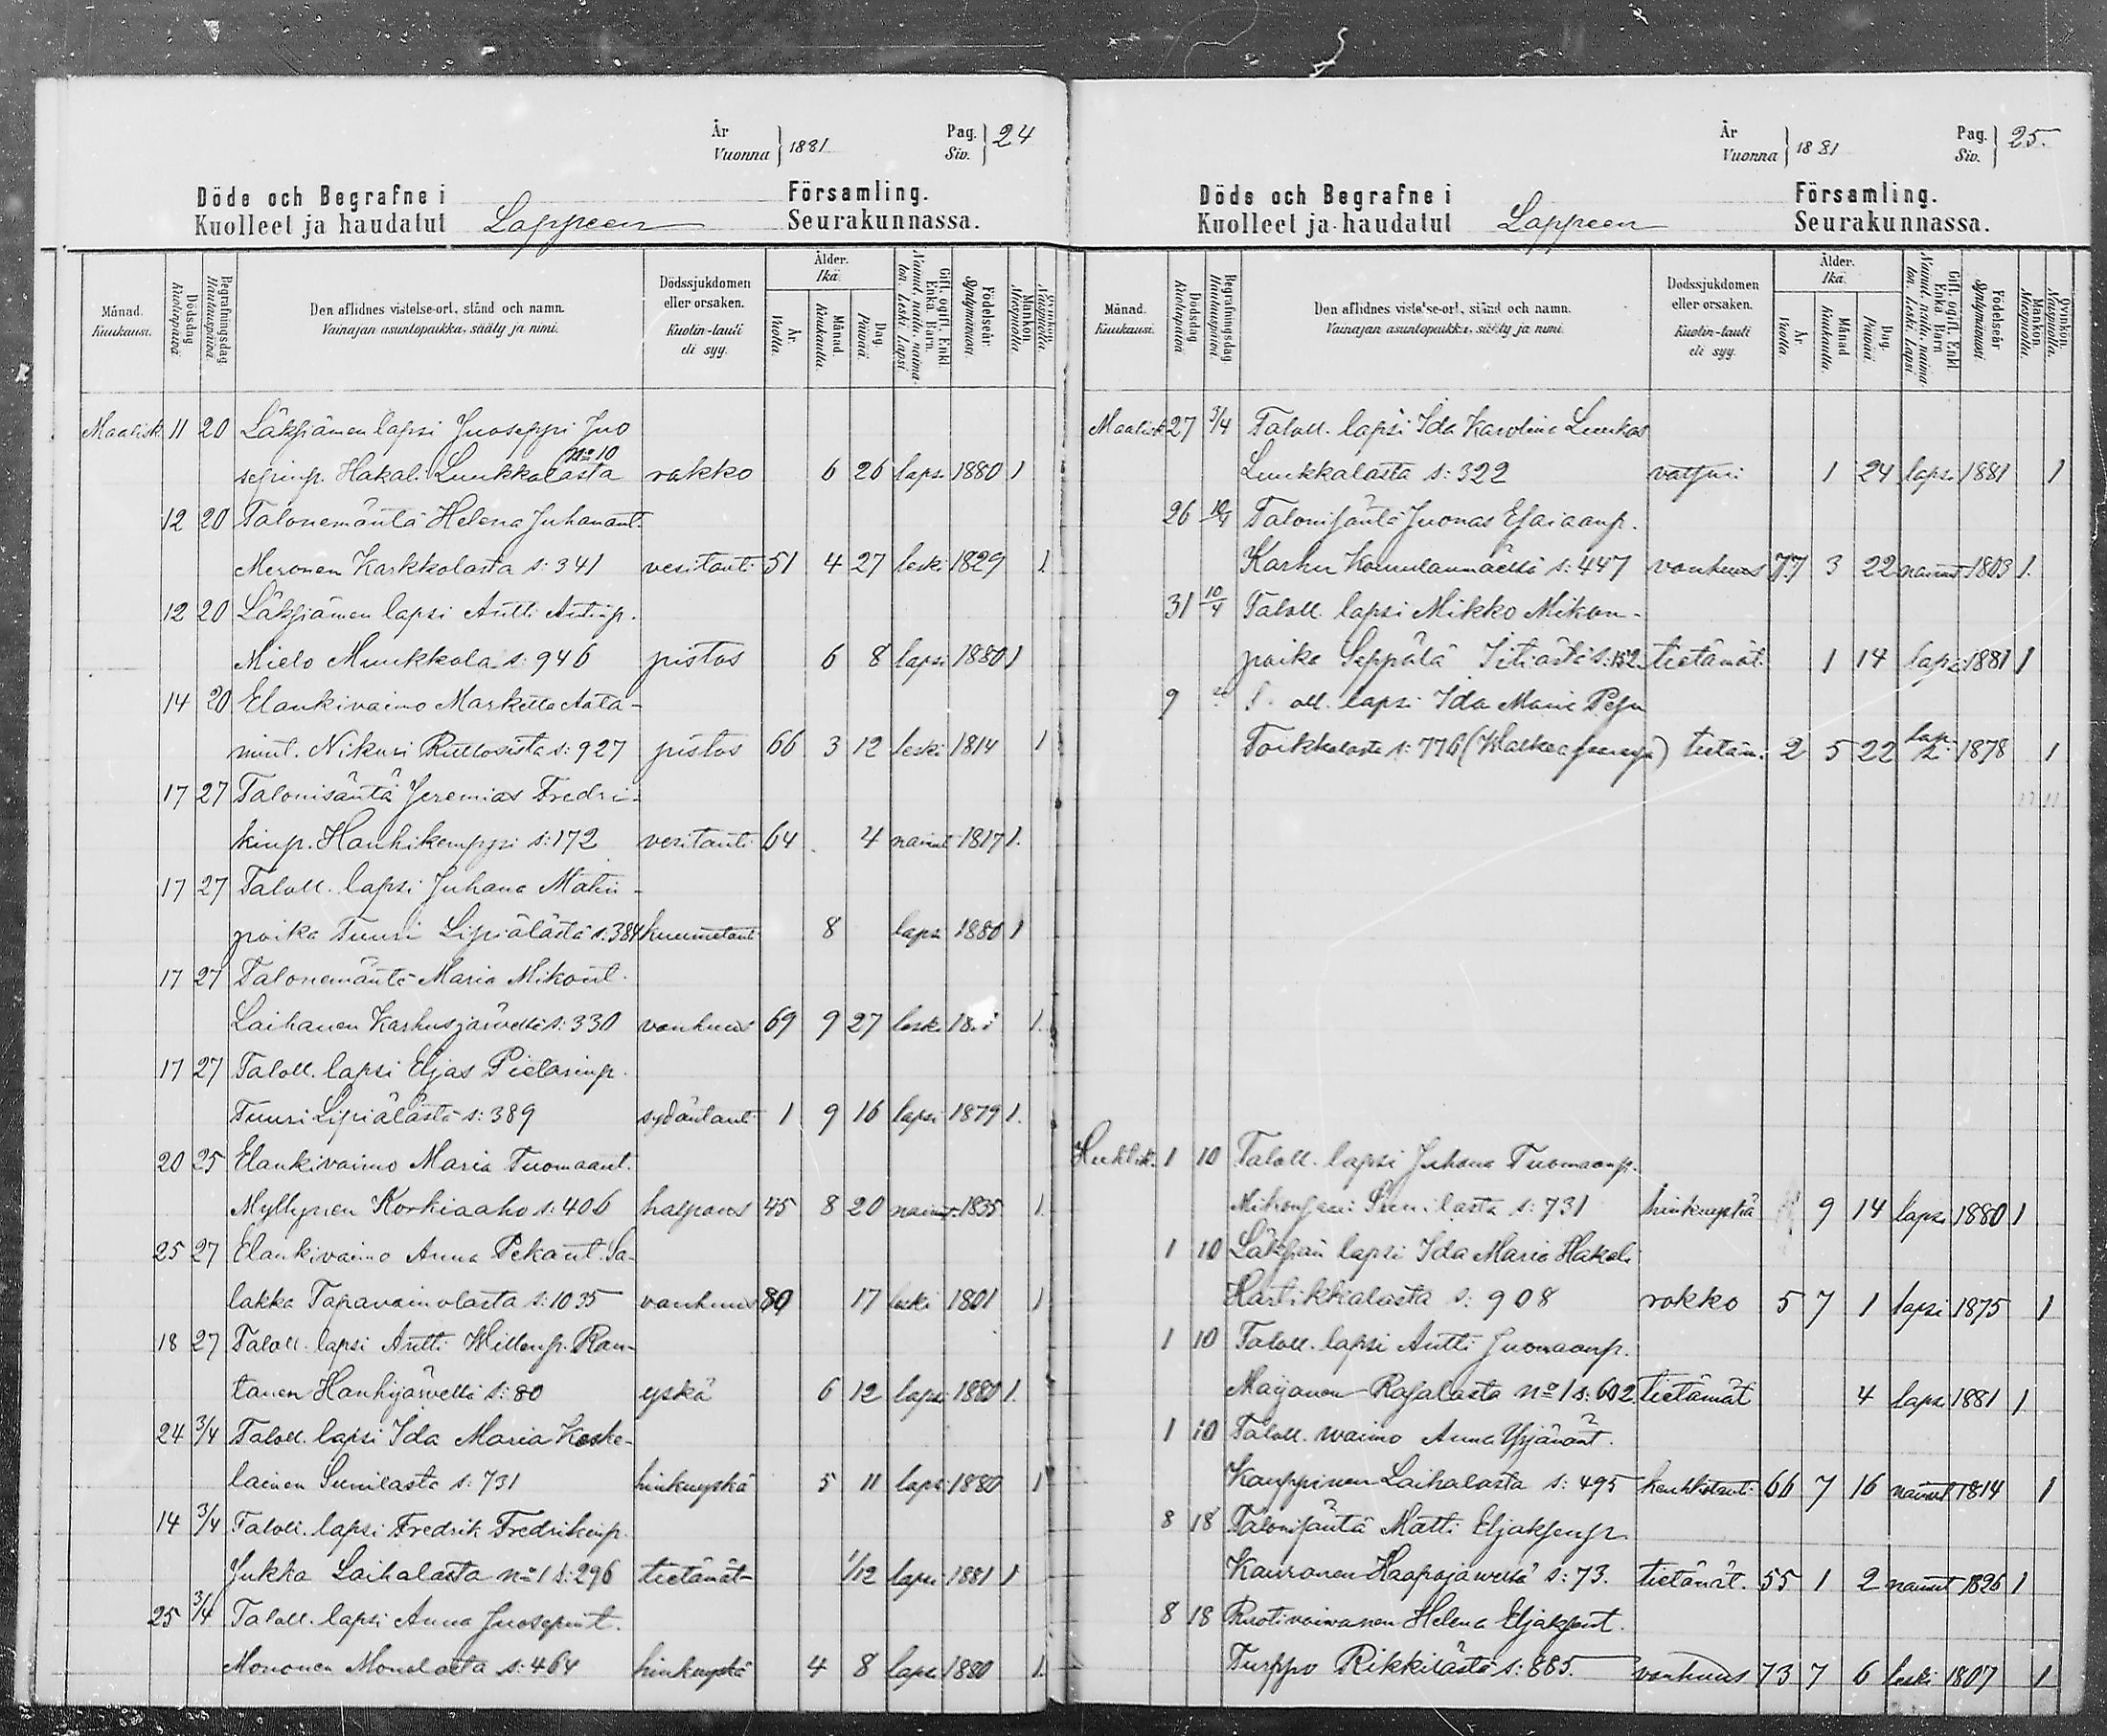 År
Vuonna } 1881
Pag.
Siv. } 24
Döde och Begrafne i Församling.
Kuolleet ja haudatut Lappeen Seurakunnassa.
Månad. Kuukausi.
Dödsdag Kuolinpäivä.
Begrafningsdag. Hautauspäivä.
Den aflidnes vistelse-ort, stånd och namn.
Vainajan asuntopaikka, sääty ja nimi.
Dödssjukdomen eller orsaken.
Kuolin-tauti eli syy.
Ålder. Ikä.
År. Vuotta.
Månad. Kuukautta.
Dag. Päivää.
Gift, ogift, Enkl. Enka, Barn.
Nainut, naitu, naimaton, Leski, Lapsi.
Födelseår Syntymävuosi.
Mankön. Miespuolia.
Qvinkön. Naispuolia.
Maalisk. 11 20 Läksiämen lapsi Juoseppi Juo
No 10
sepinp. Hakal. Luukkalasta rokko 6 26 lapsi 1880 1
12 20 Talonemäntä Helena Juhanant.
Meronen Karkkolasta s: 341 vesitauti 51 4 27 leski 1829 1.
12 20 Läksiämen lapsi Antti Antinp.
Mielo Muukkola s: 946 pistos 6 8 lapsi 1880 1
14 20 Elankivaimo Marketta Aata-
mint. Nikuri Ruttosista s: 927 pistos 66 3 12 leski 1814 1
17 27 Talonisäntä Jeremias Fredri-
kinp. Hanhikemppi s: 172 vesitauti 64 4 nainut 1817 1.
17 27 Taloll. lapsi Juhana Matin-
poika Tuuri Lipiälästä s: 384 kuumetaut 8 lapsi 1880 1
17 27 Talonemäntä Maria Mikont.
Laihanen Karhusjärveltä s: 330 vanhuus 69 9 27 leski 1.
17 27 Taloll. lapsi Eljas Pietarinp.
Tuuri Lipiälästä s: 389 sydäntaut 1 9 16 lapsi 1879 1.
20 25 Elankivaimo Maria Tuomaant.
Myllynen Korkiaaho s: 406 halpaus 45 8 20 nainut 1835 1.
25 27 Elankivaimo Anna Pekant. Sa-
lakka Tapavainolasta s: 1035 vanhuus 80 17 leski 1801 1
18 27 Taloll. lapsi Antti Willenp. Ran-
tanen Hanhijärveltä s: 80 yskä 6 12 lapsi 1880 1.
24 3/4 Taloll. lapsi Ida Maria Keske-
lainen Sunilasta s: 731 hinkuyskä 5 11 lapsi 1880 1
14 3/4 Taloll. lapsi Fredrik Fredrikinp.
Jukka Laihalasta no 1 s: 296 tietämät- 1/12 lapsi 1881 1
25 3/4 Taloll. lapsi Anna Juosepint.
Mononen Monolasta s: 464 hinkuyskä 4 8 lapsi 1880 1.
År
Vuonna } 1881
Pag.
Siv. } 25.
Döde och Begrafne i Församling.
Kuolleet ja haudatut Lappeen Seurakunnassa.
Månad. Kuukausi.
Dödsdag Kuolinpäivä
Begrafningsdag. Hautauspäivä.
Den aflidnes vistelse-ort, stånd och namn.
Vainajan asuntopaikka, sääty ja nimi.
Dödssjukdomen eller orsaken.
Kuolin-tauti eli syy.
Ålder. Ikä.
År. Vuotta.
Månad. Kuukautta.
Dag. Päivää.
Gift, ogift, Enkl. Enka, Barn
Nainut, naitu, naimaton, Leski, Lapsi.
Födelseår Syntymävuosi.
Mankön. Miespuolia.
Qvinkön. Naispuolia.
Maalisk. 27 3/4 Taloll. lapsi Ida Karolina Luukas
Luukkalasta s: 322 1 24 lapsi 1881 1
26 10/4 Talonisäntä Juonas Esaiaanp.
Karhu s: 447 vanhuus 77 3 22 nainut 1803 1.
31 10/4 Taloll. lapsi Mikko Mikon-
poika Seppälä s: 152 tietämät. 1 14 lapsi 1881 1
9 lapsi Ida Maria
Toikkalasta s: 776 tietäm. 2 5 22 lapsi 1878 1
Huhtik. 1 10 Taloll. lapsi Juhana Tuomaanp.
Sunilasta s: 731 hinkuyskä 9 14 lapsi 1880 1
1 10 Läksiän lapsi Ida Maria Hakali
Hartikkalasta s: 908 rokko 5 7 1 lapsi 1875 1
1 10 Taloll. lapsi Antti Juomaanp.
Maijanen Rasalasta no 1 s: 602 tietämät 4 lapsi 1881 1
1 10 Taloll. waimo Anna Yrjänänt.
Kauppinen Laihalasta s: 495 keuhkotauti 66 7 16 nainut 1814 1
8 18 Talonisäntä Matti Eljaksenp.
Kauronen Haapajärveltä s: 73. tietämät. 55 1 2 nainut 1826 1
8 18 Ruotivaivanen Helena Eljaksent.
Turppo Rikkilästä s: 865. vanhuus 73 7 6 leski 1807 1